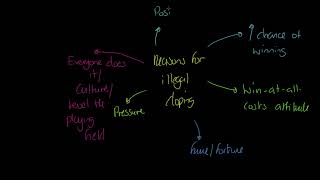 Past
↑ chance of
winning
Reasons for
illegal
doping
Everyone does
it/
culture/
level the
playing
field
Pressure
win-at-all-
costs attitude
fame/fortune